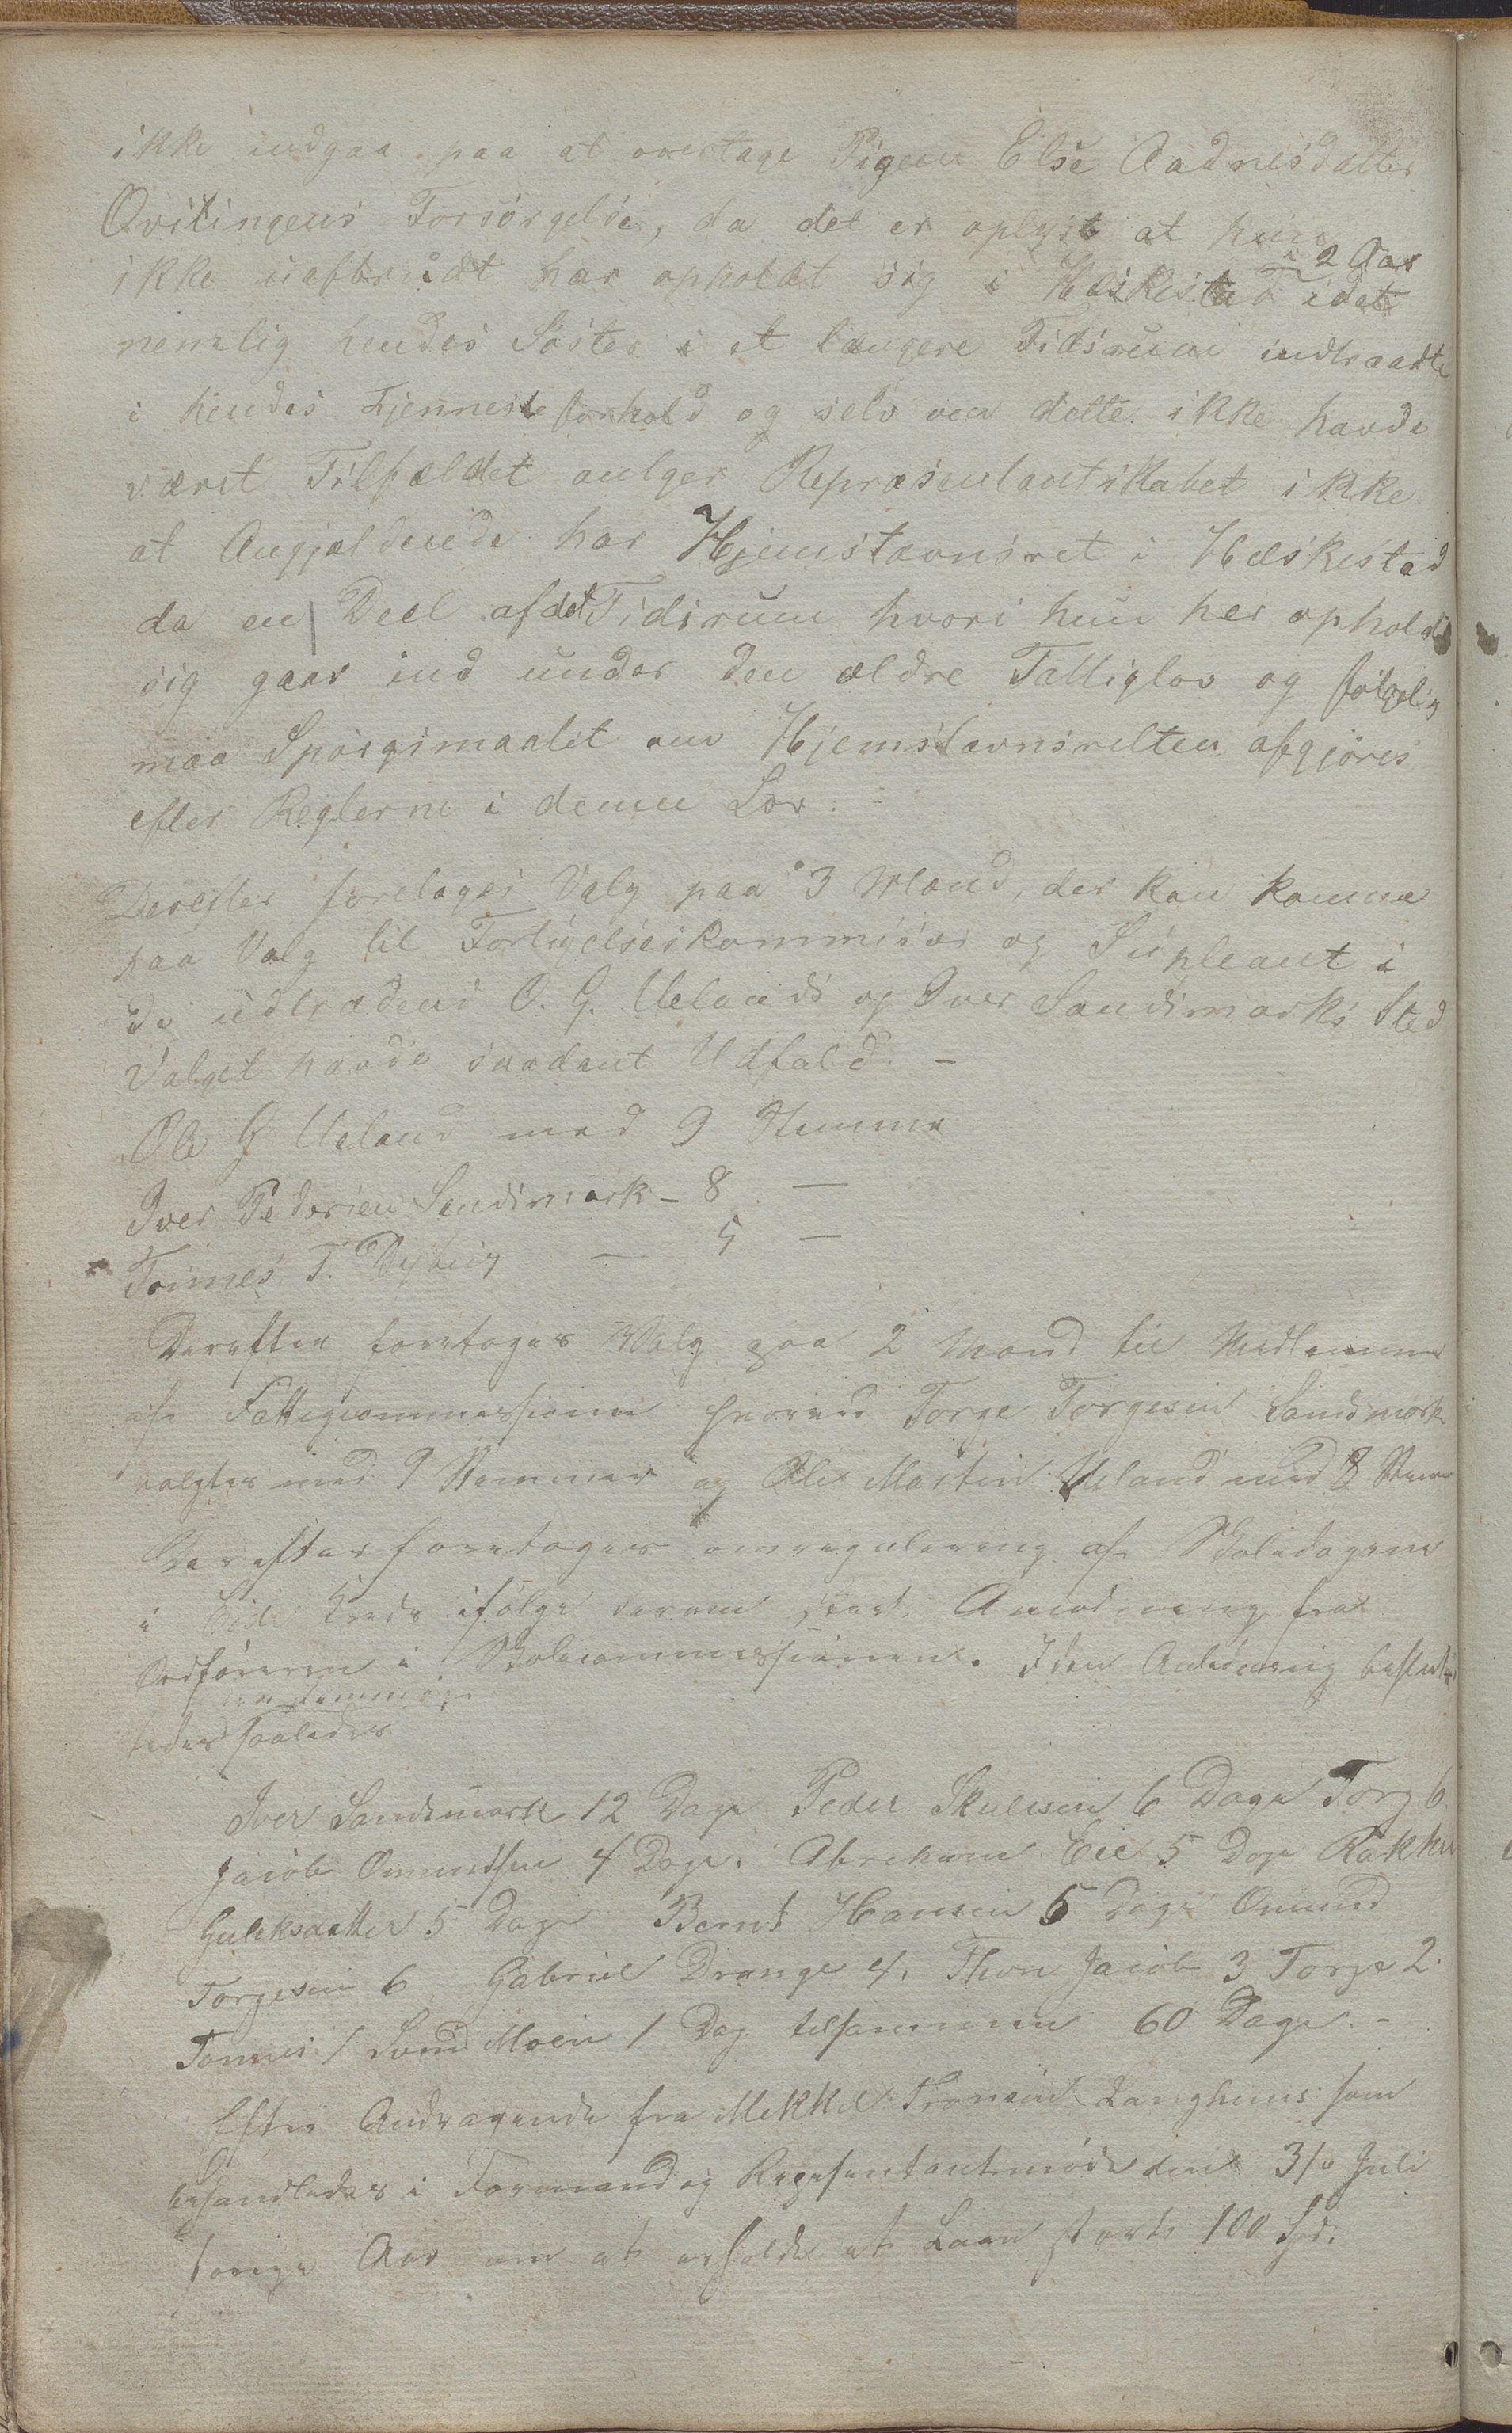 ikke indgaa paa at overtage Pigen Else Aadnesdatter
Qvitingens Forsørgelse, da det er oplyst at hun
ikke uafbrudt har opholdt sig i Heskestad i 2 Aar idet
nemlig hendes Søster i et længere Tidsrum indtraadte
i hendes Tjenneste forhold og selv om dette ikke havde
været Tilfældet antger Repræsentantskabet ikke
at Angjeldende har Hjemstavnsret i Heskestad
da en Deel af det Tidsrum hvori hun her opholdt
sig gaar ind under den ældre Fattiglov og følgelig
maa Spørgsmaalet om Hjemstavnsretten afgjøres
efter Reglerne i denne Lov. -
Derefter foretoges Valg paa 3 Mænd, der kan komme
paa Valg til Forligelseskommisær og Supleant i
de udtrædend O. G. Uelands og Iver Sandsmarks Sted
Valget havde saadant Udfald. -
Ole G Ueland med 9 Stemme
Iver Pedersen Sandsmark - 8 -
Tønnes T. Dybing - 5 -
Derefter foretoges Valg paa 2 Mænd til Medlemmer
af Fattigcommissionen hvorved Torge Torgesen Sandsmark
valgtes med 9 Stemmer og Ole Martin Ueland med 8 Stem
Derefter foretoges omregulering af Skoledagene
i Eide Kreds ifølge derom skeet Anmodning fra
Ordføreren i Skolecommissionen. I den Anledning beslut-
tedes saaledes
Iver Sandsmark 12 Dage Peder Skulesen 6 Dage Torg 6
Jacob Omundsen 4 Dage. Abraham Eie 5 Dage Rakkel
Guleksdatter 5 Dage Bernt Hansen 5 Dage Omund
Torgesen 6 Gabriel Drange 4. Thore Jacob 3 Torge 2.
Tønnes 1 Svend Moen 1 Dag tilsammen 60 Dage. -
Efter Andragende fra Mekkel Tronsen Langhuus som
behandledes i Formand og Repesentantmøde den 31te Juli
forige Aar om at erholde et Laan stort 100 Spd.